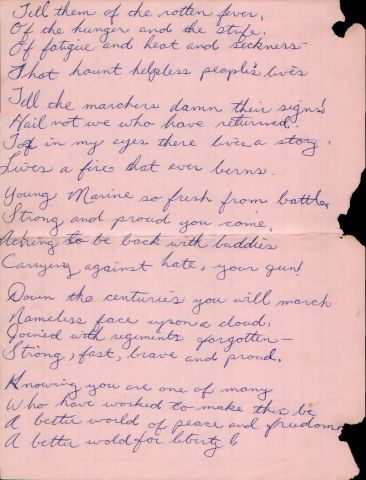 Tell them of the rotten fever,
Of the hunger and the stife,
Of fatigue and heat and sickness
That haunt helpless people's lives
Tell the marchers damn their signs!
Hail not we who have returned.
For in my eyes there lives a story,
Lives a fire that ever berns.
Young Marine so fresh from battle,
Strong and proud you come,
Aching to be back with buddies
Carrying against hate, your gun!
Down the centuries you will march
Nameless face upon a cloud,
Joined with regiments forgotten—
Strong, fast, brave and proud.
Knowing you are one of many
Who have worked to make this be
A better world of peace and freedom
A better wold for liberty